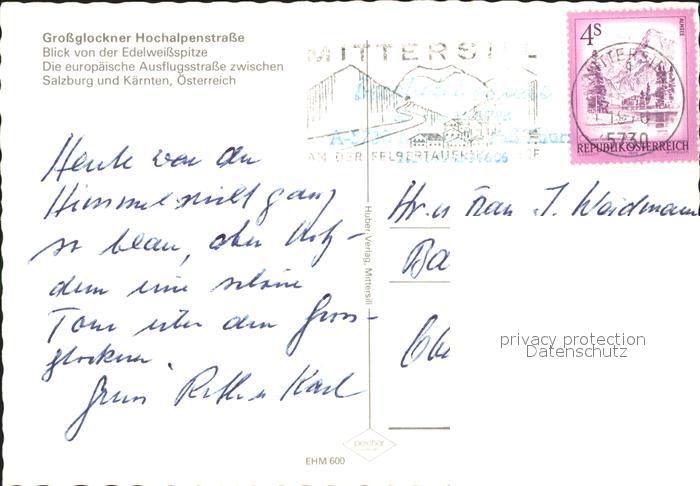 Großglockner Hochalpenstraße
Blick von der Edelweißspitze
Die europäische Ausflugsstraße zwischen
Salzburg und Kärnten, Österreich
MITTERSILL
AN DER FELBERTAUERNSTRASSE
4S
ALMSEE
MITTERSILL
5730
REPUBLIK ÖSTERREICH
Heute war der
Himmel nicht ganz
so blau, aber trotz-
dem eine schöne
Tour über den Gross-
glockner
Gruss Ruth u Karl
Huber Verlag, Mittersill
Hr. u Frau J. Waidmann
Ba
Obe
privacy protection
Datenschutz
EHM 600